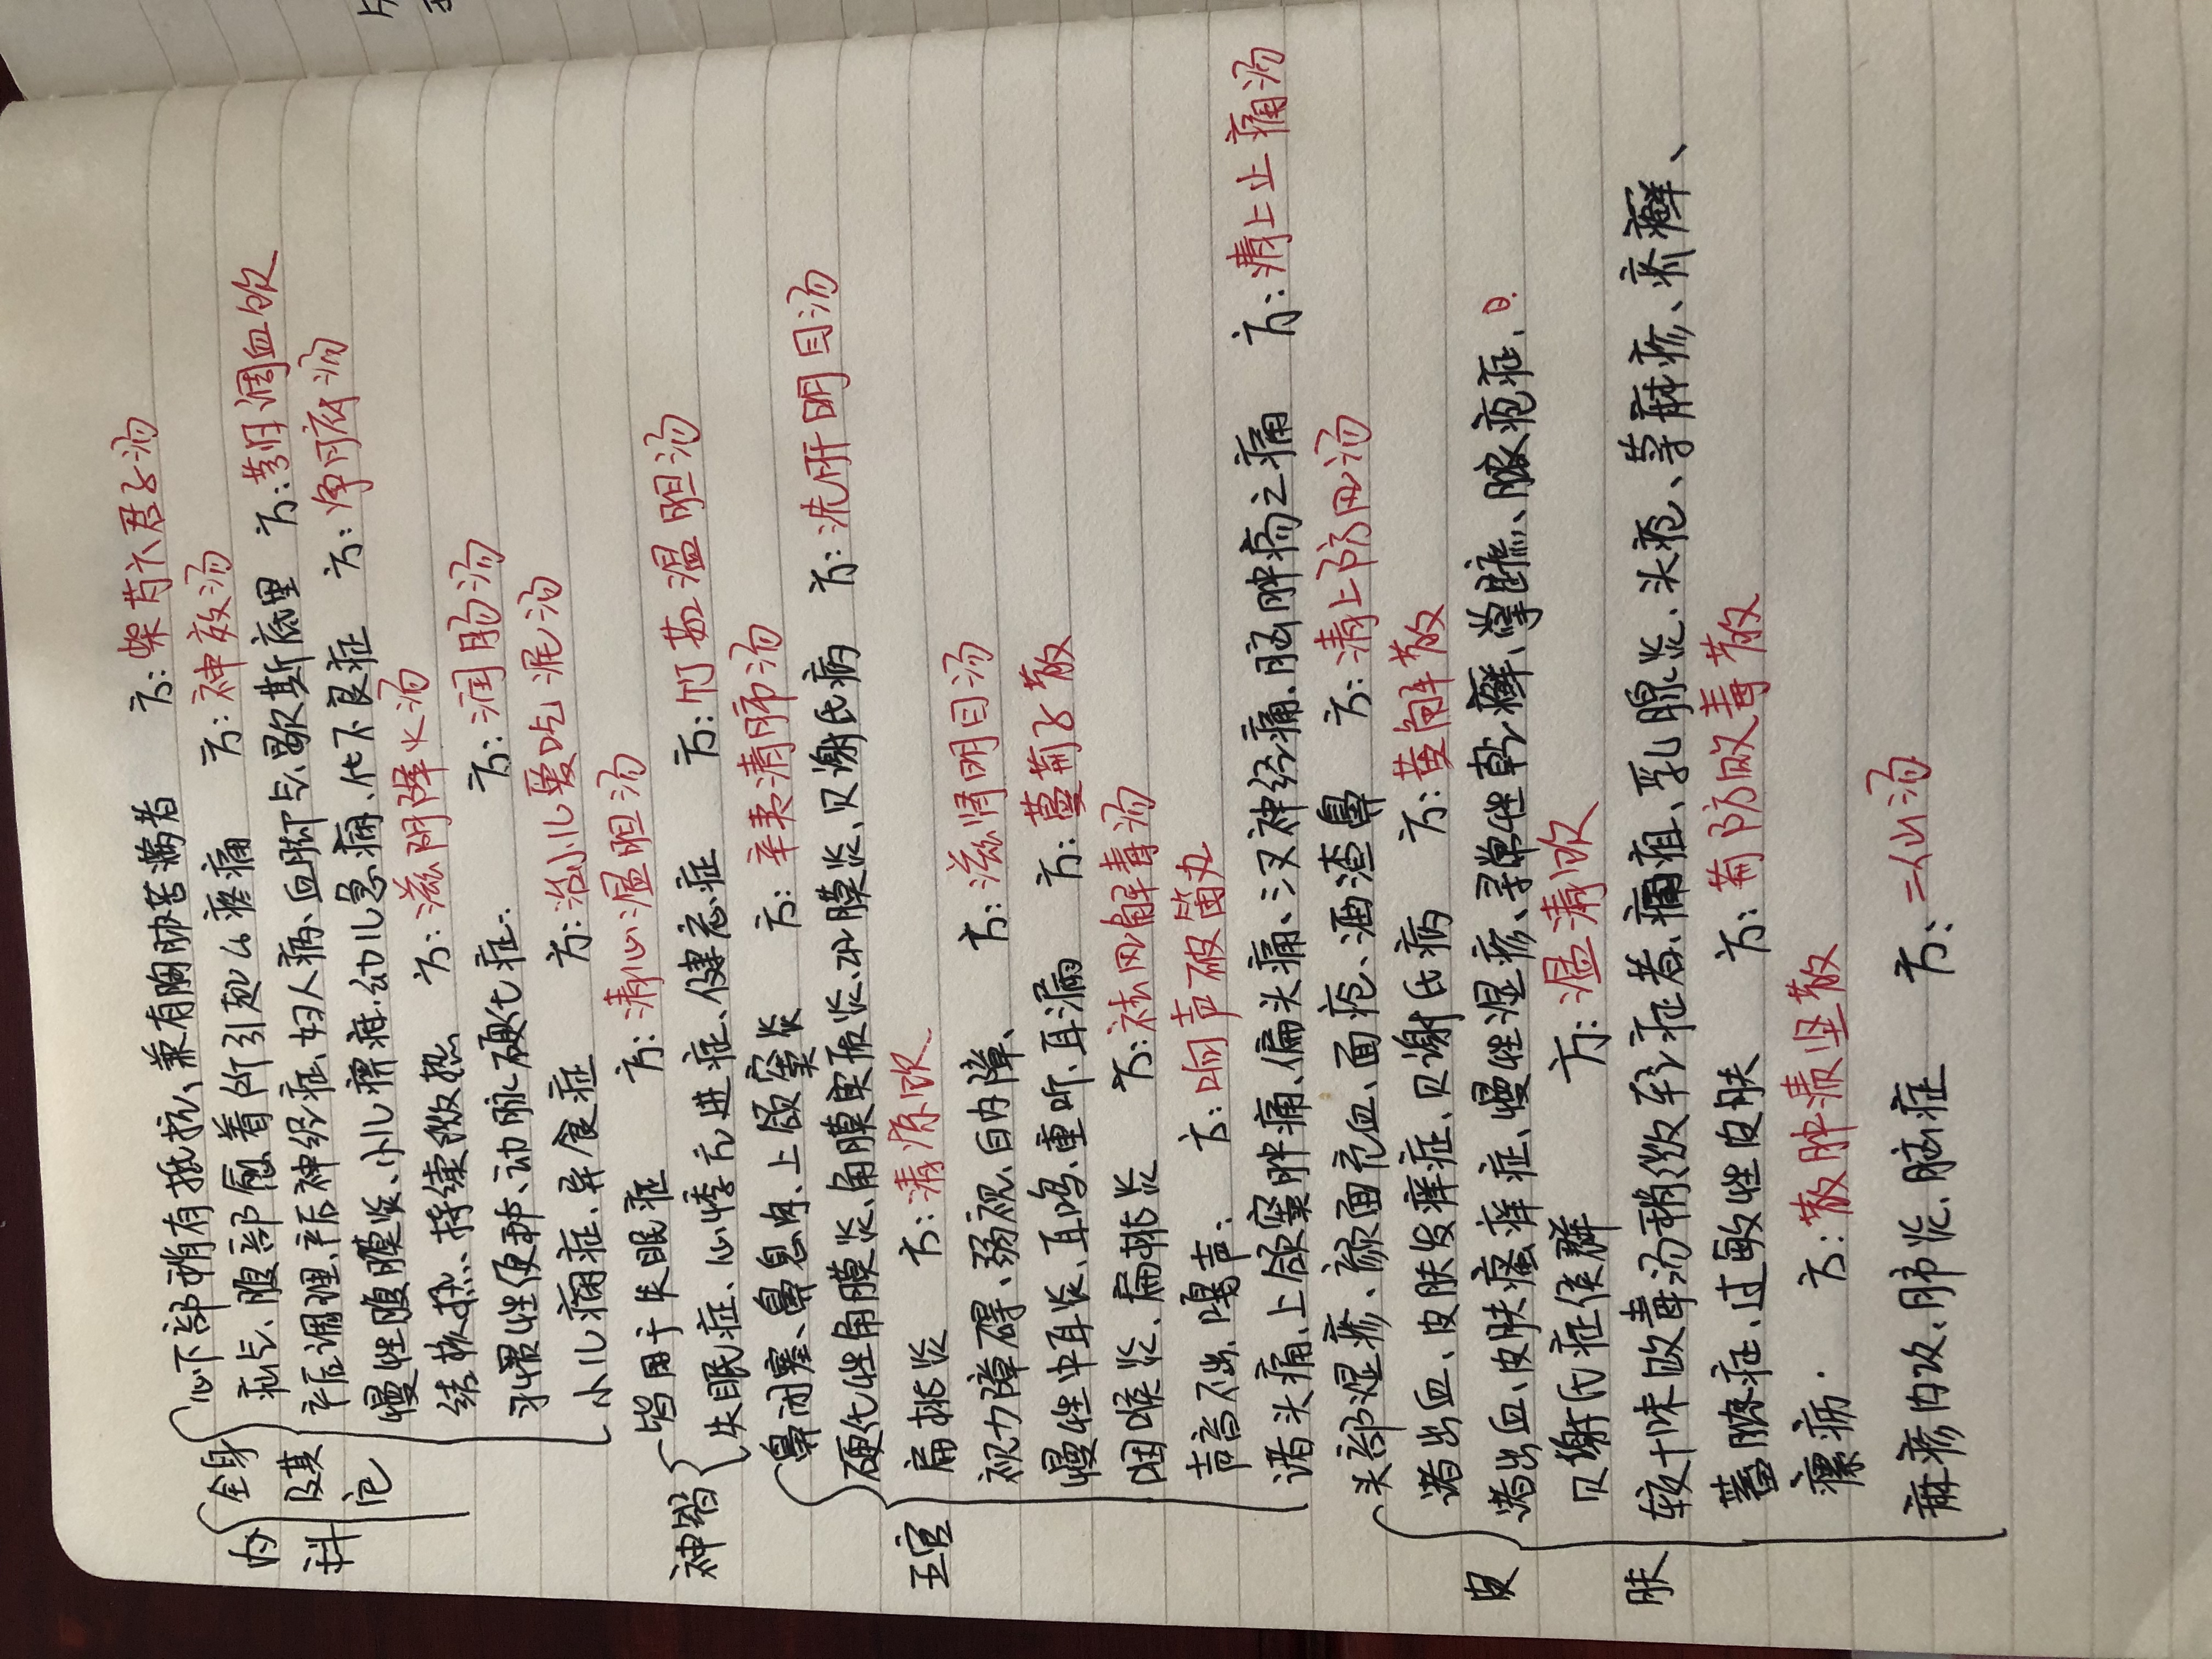 内科
全身及其它
心下部稍有抵抗、兼有胸胁苦满者 方:柴芍六君子汤
疝气、腹部愈着所引起的疼痛 方:神效汤
产后调理、产后神经症、妇人病、血脚气、歇斯底里 方:芎归调血饮
慢性腹膜炎、小儿痹症、幼儿急痫、代下良症 方:净府汤
结核热、持续微热 方:滋阴降火汤
习惯性便秘、动脉硬化症. 方:润肠汤
小儿痫症、异食症 方:治小儿爱吃泥汤
神智
皆用于失眠症 方:清心温胆汤
失眠症、心悸亢进症、健忘症 方:竹茹温胆汤
五官
鼻闭塞、鼻息肉、上颌窦炎 方:辛夷清肺汤
硬化性角膜炎、角膜实质炎、巩膜炎、贝谢氏病 方:洗肝明目汤
扁桃炎 方:清凉饮
视力障碍、弱视、白内障、 方:滋肾明目汤
慢性中耳炎、耳鸣、重听、耳漏 方:蔓荆子散
咽喉炎、扁桃炎 方:祛风解毒汤
声音不出、嗄声. 方:响声破笛丸
诸头痛、上颌窦肿痛、偏头痛、三叉神经痛、脑肿疡之痛 方:清上止痛汤
皮肤
头部湿疹、颜面充血、面疱、酒渣鼻 方:清上防风汤
诸出血、皮肤发痒症、贝谢氏病 方:黄解散
诸出血、皮肤瘙痒症、慢性湿疹、寻常性乾癣、掌蹠脓疱症、
贝谢氏症侯群 方:温清饮
较十味败毒汤稍微轻症者、痈疽、乳腺炎、头疮、荨麻疹、疥癣、
蓄脓症、过敏性皮肤 方:荆防败毒散
瘰疬. 方:散肿溃坚散
麻疹内攻、肺炎、脑症 方:二仙汤